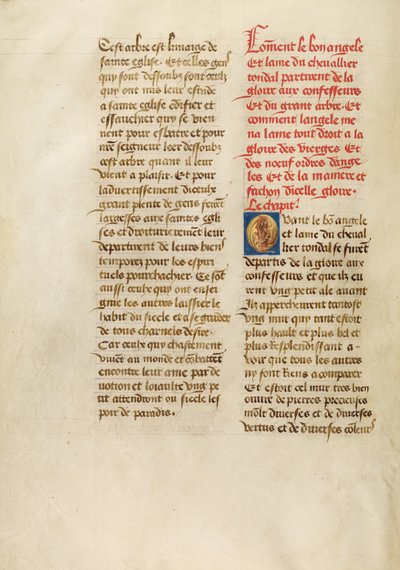 Cest arbre est limaige de
saincte eglise. Et celles gens
quy sont dessoubz sont ceulz
quy ont mis leur estude
a saincte eglise ediffier et
essauchier quy se vien
nent pour esbatre et pour
nr̄e seigneur loer dessoubz
cest arbre quant il leur
vient a plaisir. Et pour
laduertissement diceulx
grant plente de gens feirēt
largesses aux sainctes egli
ses et droiturierem̄t leur
departent de leurs biens
temporez pour les espiri
tuelz pourchachier. Ce sōt
aussi ceulx quy ont ensei
gnie les autres laissier le
habit du siecle et a se garder
de tous charnelz desirs.
Car ceulx quy chastement
viuent au monde et cōbatēt
encontre leur ame par de
uotion et loiaulte vng pe
tit attendront ou siecle les
poir de paradis.
Coment le bon angele
Et lame du cheuallier
tondal partirent de la
gloire aux confesseurs
Et du grant arbre. Et
comment langele me
na lame tout droit a la
gloire des vierges Et
des noeuf ordres dange
les Et de la maniere et
fachon dicelle gloire.
Le chapit.
Quant le bō angele
et lame du cheual
lier tondal se furēt
departis de la gloire aux
confesseurs et que ilz eu
rent vng petit ale auant
Ilz apperchurent tantost
vng mur quy tant estoit
plus hault et plus bel et
plus Resplendissant a
veoir que tous les autres
ny font Riens a comparer
Et estoit cel mur tres bien
ouure de pierres precieuses
moult diverses et de diverses
vertus et de diverses couleurs